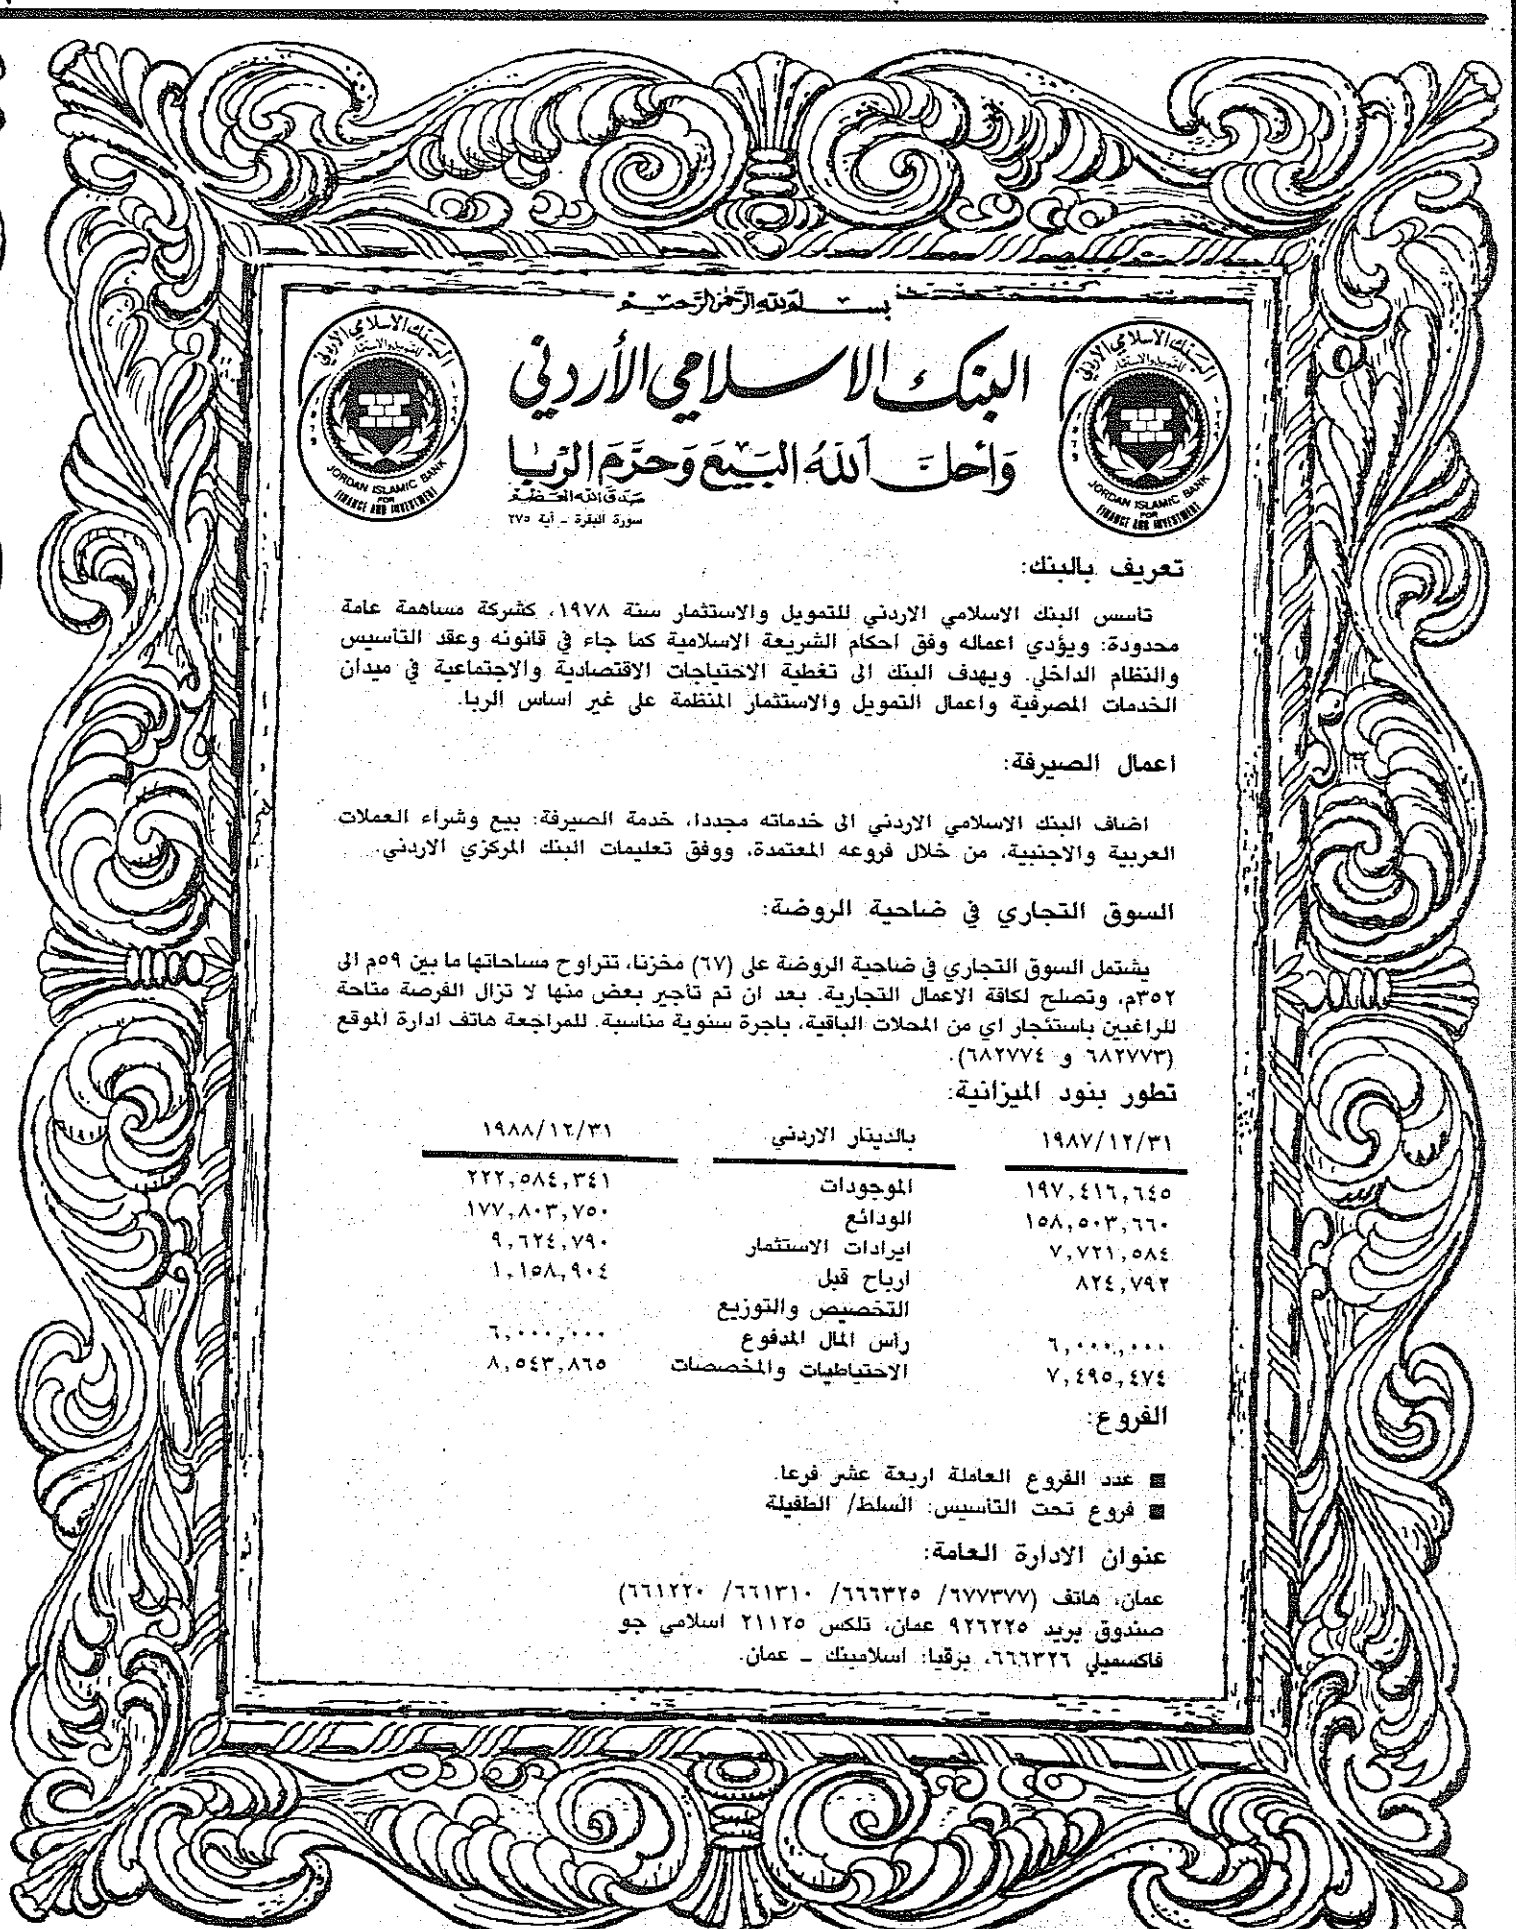 بسم الله الرحمن الرحيم
البنك الاسلامي الأردني
وَأحلَّ اللهُ البَيعَ وَحرَّمَ الرِّبا
صدق الله العظيم
سورة البقرة ـ آية ٢٧٥
البنك الاسلامي الاردني
للتمويل والاستثمار
JORDAN ISLAMIC BANK
FOR
FINANCE AND INVESTMENT
البنك الاسلامي الاردني
للتمويل والاستثمار
JORDAN ISLAMIC BANK
FOR
FINANCE AND INVESTMENT
تعريف بالبنك:
تأسس البنك الاسلامي الاردني للتمويل والاستثمار سنة ١٩٧٨، كشركة مساهمة عامة
محدودة: ويؤدي اعماله وفق احكام الشريعة الاسلامية كما جاء في قانونه وعقد التأسيس
والنظام الداخلي. ويهدف البنك الى تغطية الاحتياجات الاقتصادية والاجتماعية في ميدان
الخدمات المصرفية واعمال التمويل والاستثمار المنظمة على غير اساس الربا.
اعمال الصيرفة:
اضاف البنك الاسلامي الاردني الى خدماته مجددا، خدمة الصيرفة: بيع وشراء العملات
العربية والاجنبية، من خلال فروعه المعتمدة، ووفق تعليمات البنك المركزي الاردني.
السوق التجاري في ضاحية الروضة:
يشتمل السوق التجاري في ضاحية الروضة على (٦٧) مخزنا، تتراوح مساحاتها ما بين ٥٩م الى
٣٥٢م، وتصلح لكافة الاعمال التجارية. بعد ان تم تأجير بعض منها لا تزال الفرصة متاحة
للراغبين باستئجار اي من المحلات الباقية، باجرة سنوية مناسبة. للمراجعة هاتف ادارة الموقع
(٦٨٢٧٧٣ و ٦٨٢٧٧٤).
تطور بنود الميزانية:
١٩٨٧/١٢/٣١ بالدينار الاردني ١٩٨٨/١٢/٣١
١٩٧,٤١٦,٦٤٥ الموجودات ٢٢٢,٥٨٤,٣٤١
١٥٨,٥٠٣,٦٦٠ الودائع ١٧٧,٨٠٣,٧٥٠
٧,٧٢١,٥٨٤ ايرادات الاستثمار ٩,٦٢٤,٧٩٠
٨٢٤,٧٩٢ ارباح قبل ١,١٥٨,٩٠٤
التخصيص والتوزيع
٦,٠٠٠,٠٠٠ رأس المال المدفوع ٦,٠٠٠,٠٠٠
٧,٤٩٥,٤٧٤ الاحتياطيات والمخصصات ٨,٥٤٣,٨٦٥
الفروع:
■ عدد الفروع العاملة اربعة عشر فرعا.
■ فروع تحت التأسيس: السلط/ الطفيلة
عنوان الادارة العامة:
عمان، هاتف (٦٧٧٣٧٧/ ٦٦٦٣٢٥/ ٦٦١٣١٠/ ٦٦١٢٢٠)
صندوق بريد ٩٢٦٢٢٥ عمان، تلكس ٢١١٢٥ اسلامي جو
فاكسميلي ٦٦٦٣٢٦، برقيا: اسلامبنك ـ عمان.